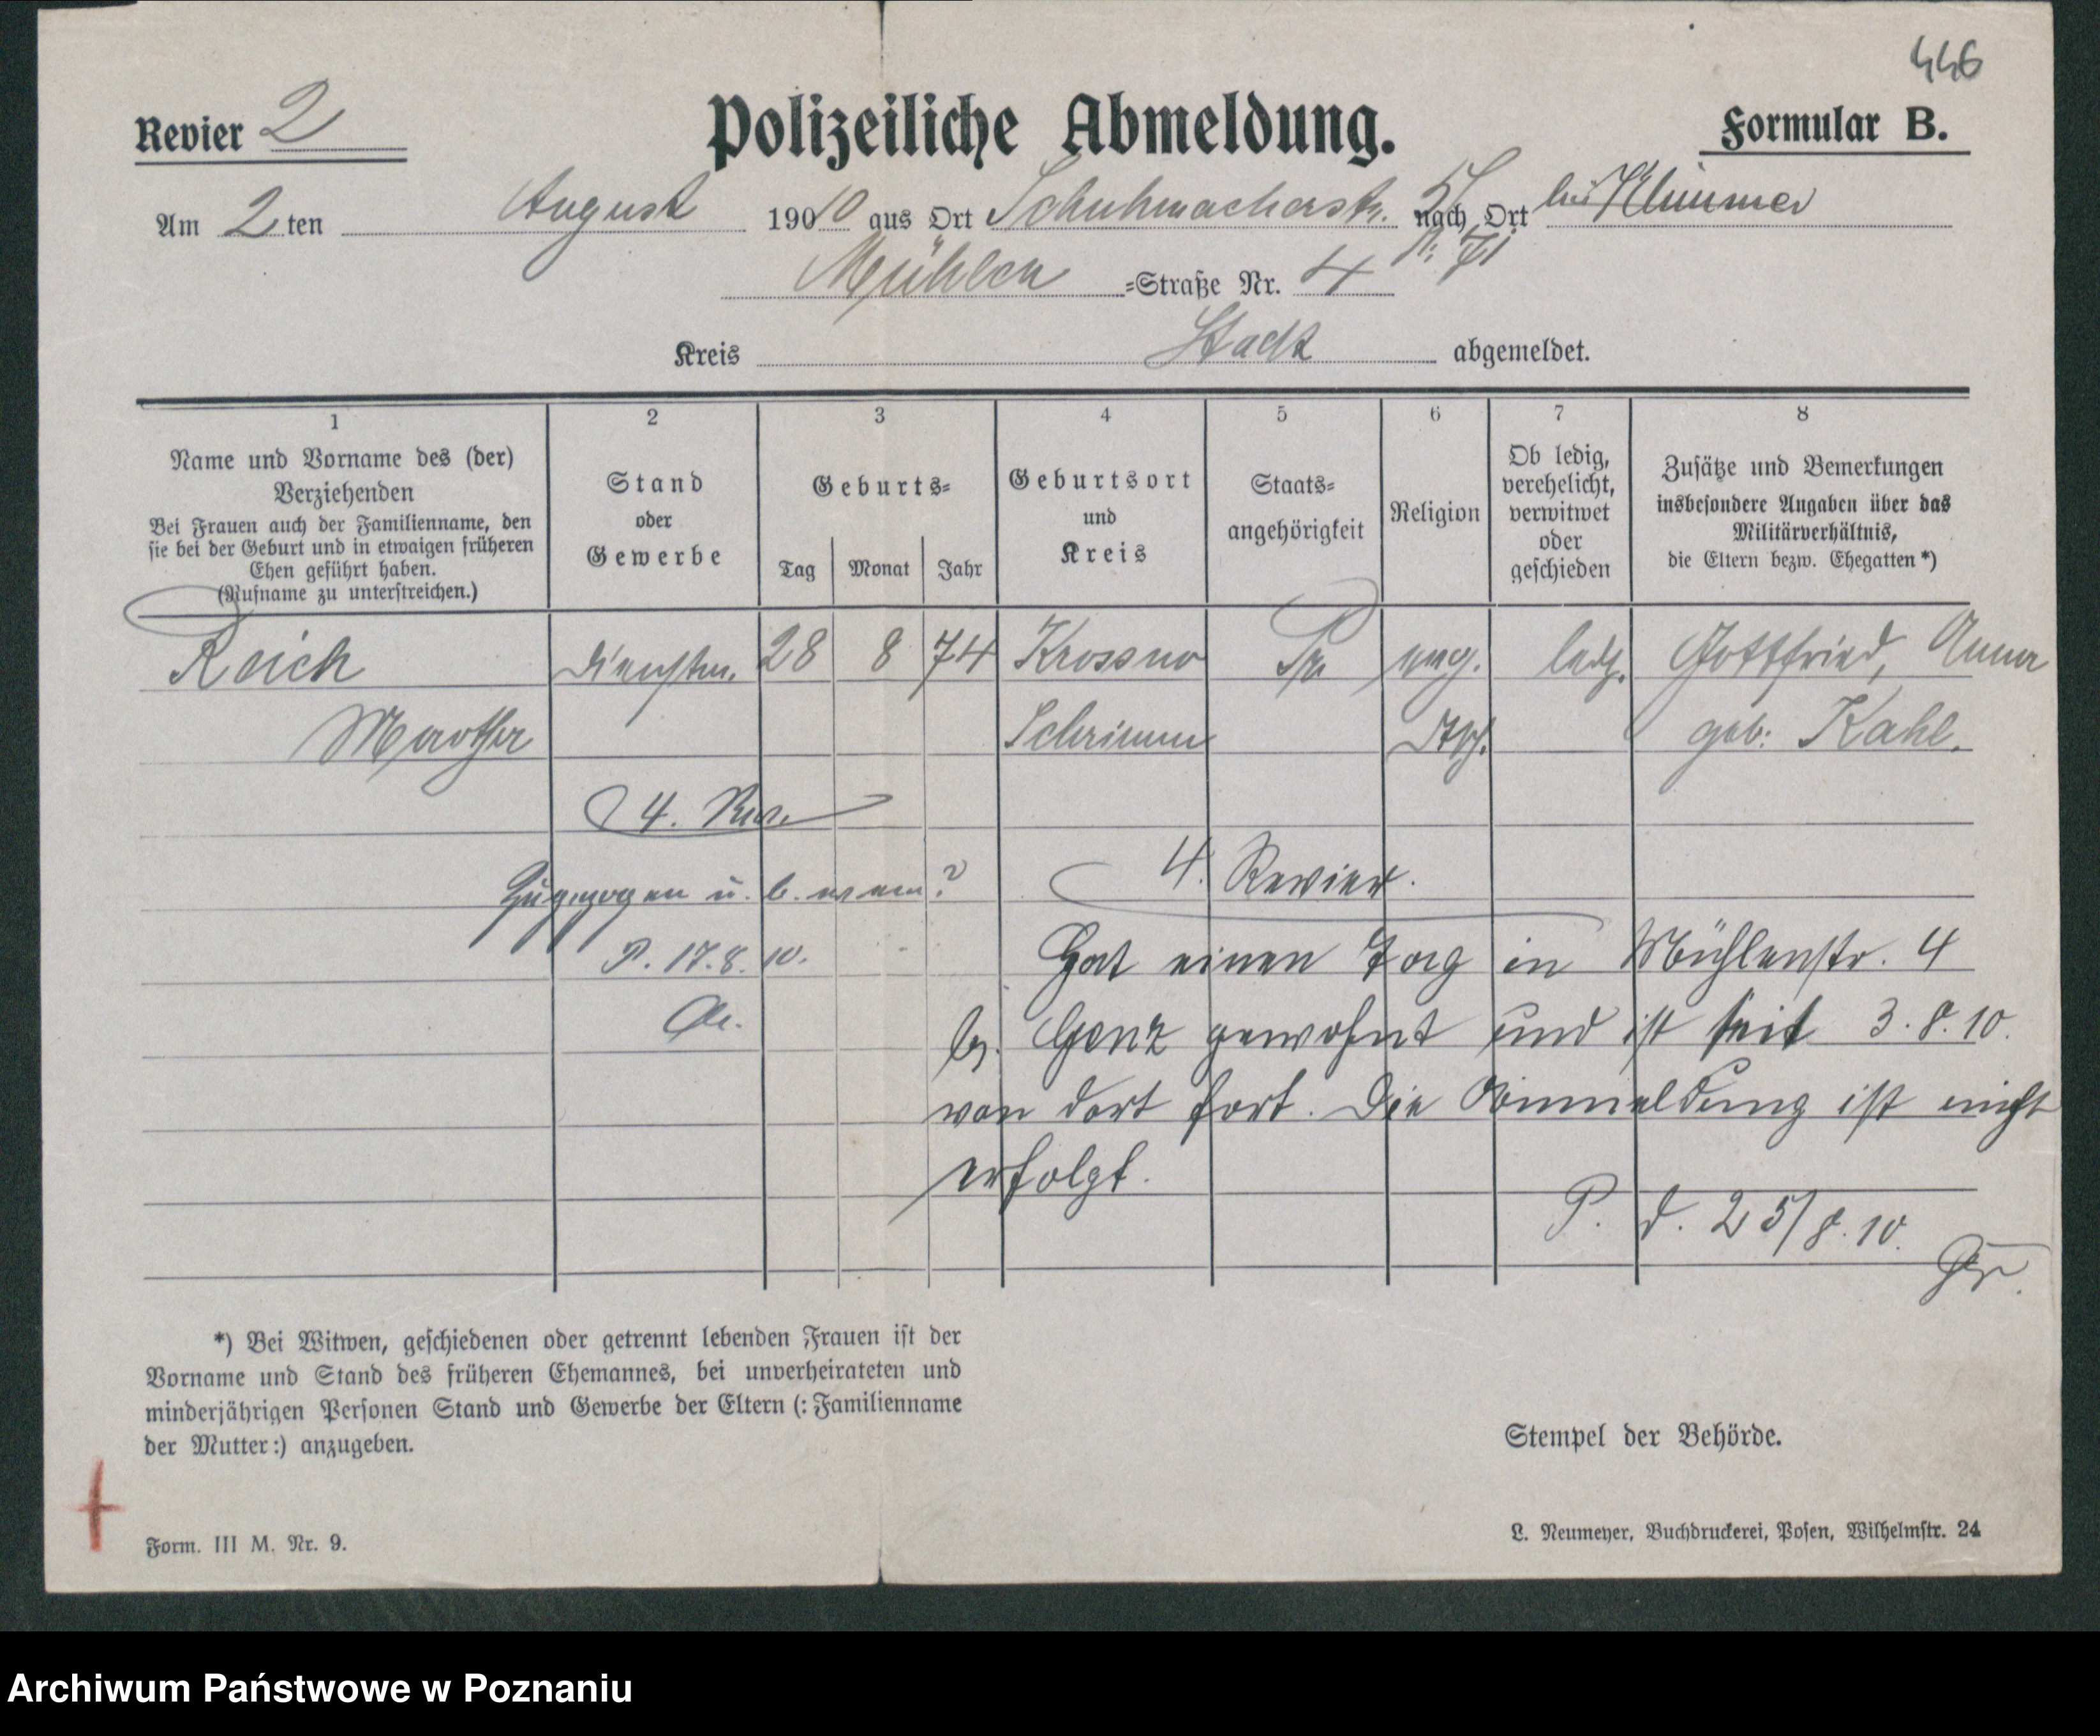 446
Revier 2
Polizeiliche Abmeldung.
Formular B.
Am 2 ten August 1910 aus Ort Schuhmacherstr. nach Ort bei Klimmer
Mühlen =Straße Nr. 4
Kreis Stadt abgemeldet.
1 2 3 4 5 6 7 8
Name und Vorname des (der)
Verziehenden
Bei Frauen auch der Familienname, den
sie bei der Geburt und in etwaigen früheren
Ehen geführt haben.
(Rufname zu unterstreichen.)
Stand
oder
Gewerbe
Geburts=
Tag Monat Jahr
Geburtsort
und
Kreis
Staats=
angehörigkeit
Religion
Ob ledig,
verehelicht,
verwitwet
oder
geschieden
Zusätze und Bemerkungen
insbesondere Angaben über das
Militärverhältnis,
die Eltern bezw. Ehegatten *)
Reich Dienstm. 28 8 74 Krossno Pr evg. ledg. Gottfried, Anna
Martha Schrimm geb: Kahl.
4. Rev.
Zugezogen u. b. wem?
4. Revier.
P. 17.8.10.
Hat einen Tag in Mühlenstr. 4
b. Genz gewohnt und ist seit 3.8.10.
von dort fort. Die Anmeldung ist nicht
erfolgt.
P. d. 25/8.10.
*) Bei Witwen, geschiedenen oder getrennt lebenden Frauen ist der
Vorname und Stand des früheren Ehemannes, bei unverheirateten und
minderjährigen Personen Stand und Gewerbe der Eltern (: Familienname
der Mutter :) anzugeben.
Stempel der Behörde.
Form. III M. Nr. 9.
L. Neumeyer, Buchdruckerei, Posen, Wilhelmstr. 24
Archiwum Państwowe w Poznaniu